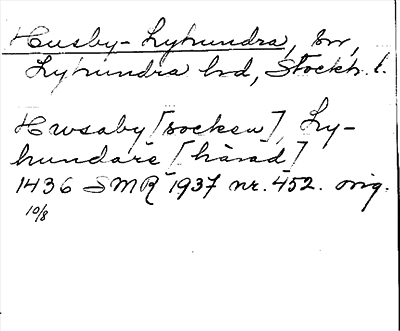 Husby-Lyhundra, sn,
Lyhundra hd, Stockh. l.
Hwsaby [socken], Ly-
hundare [härad]
1436 SMR 1937 nr. 452. orig.
10/8